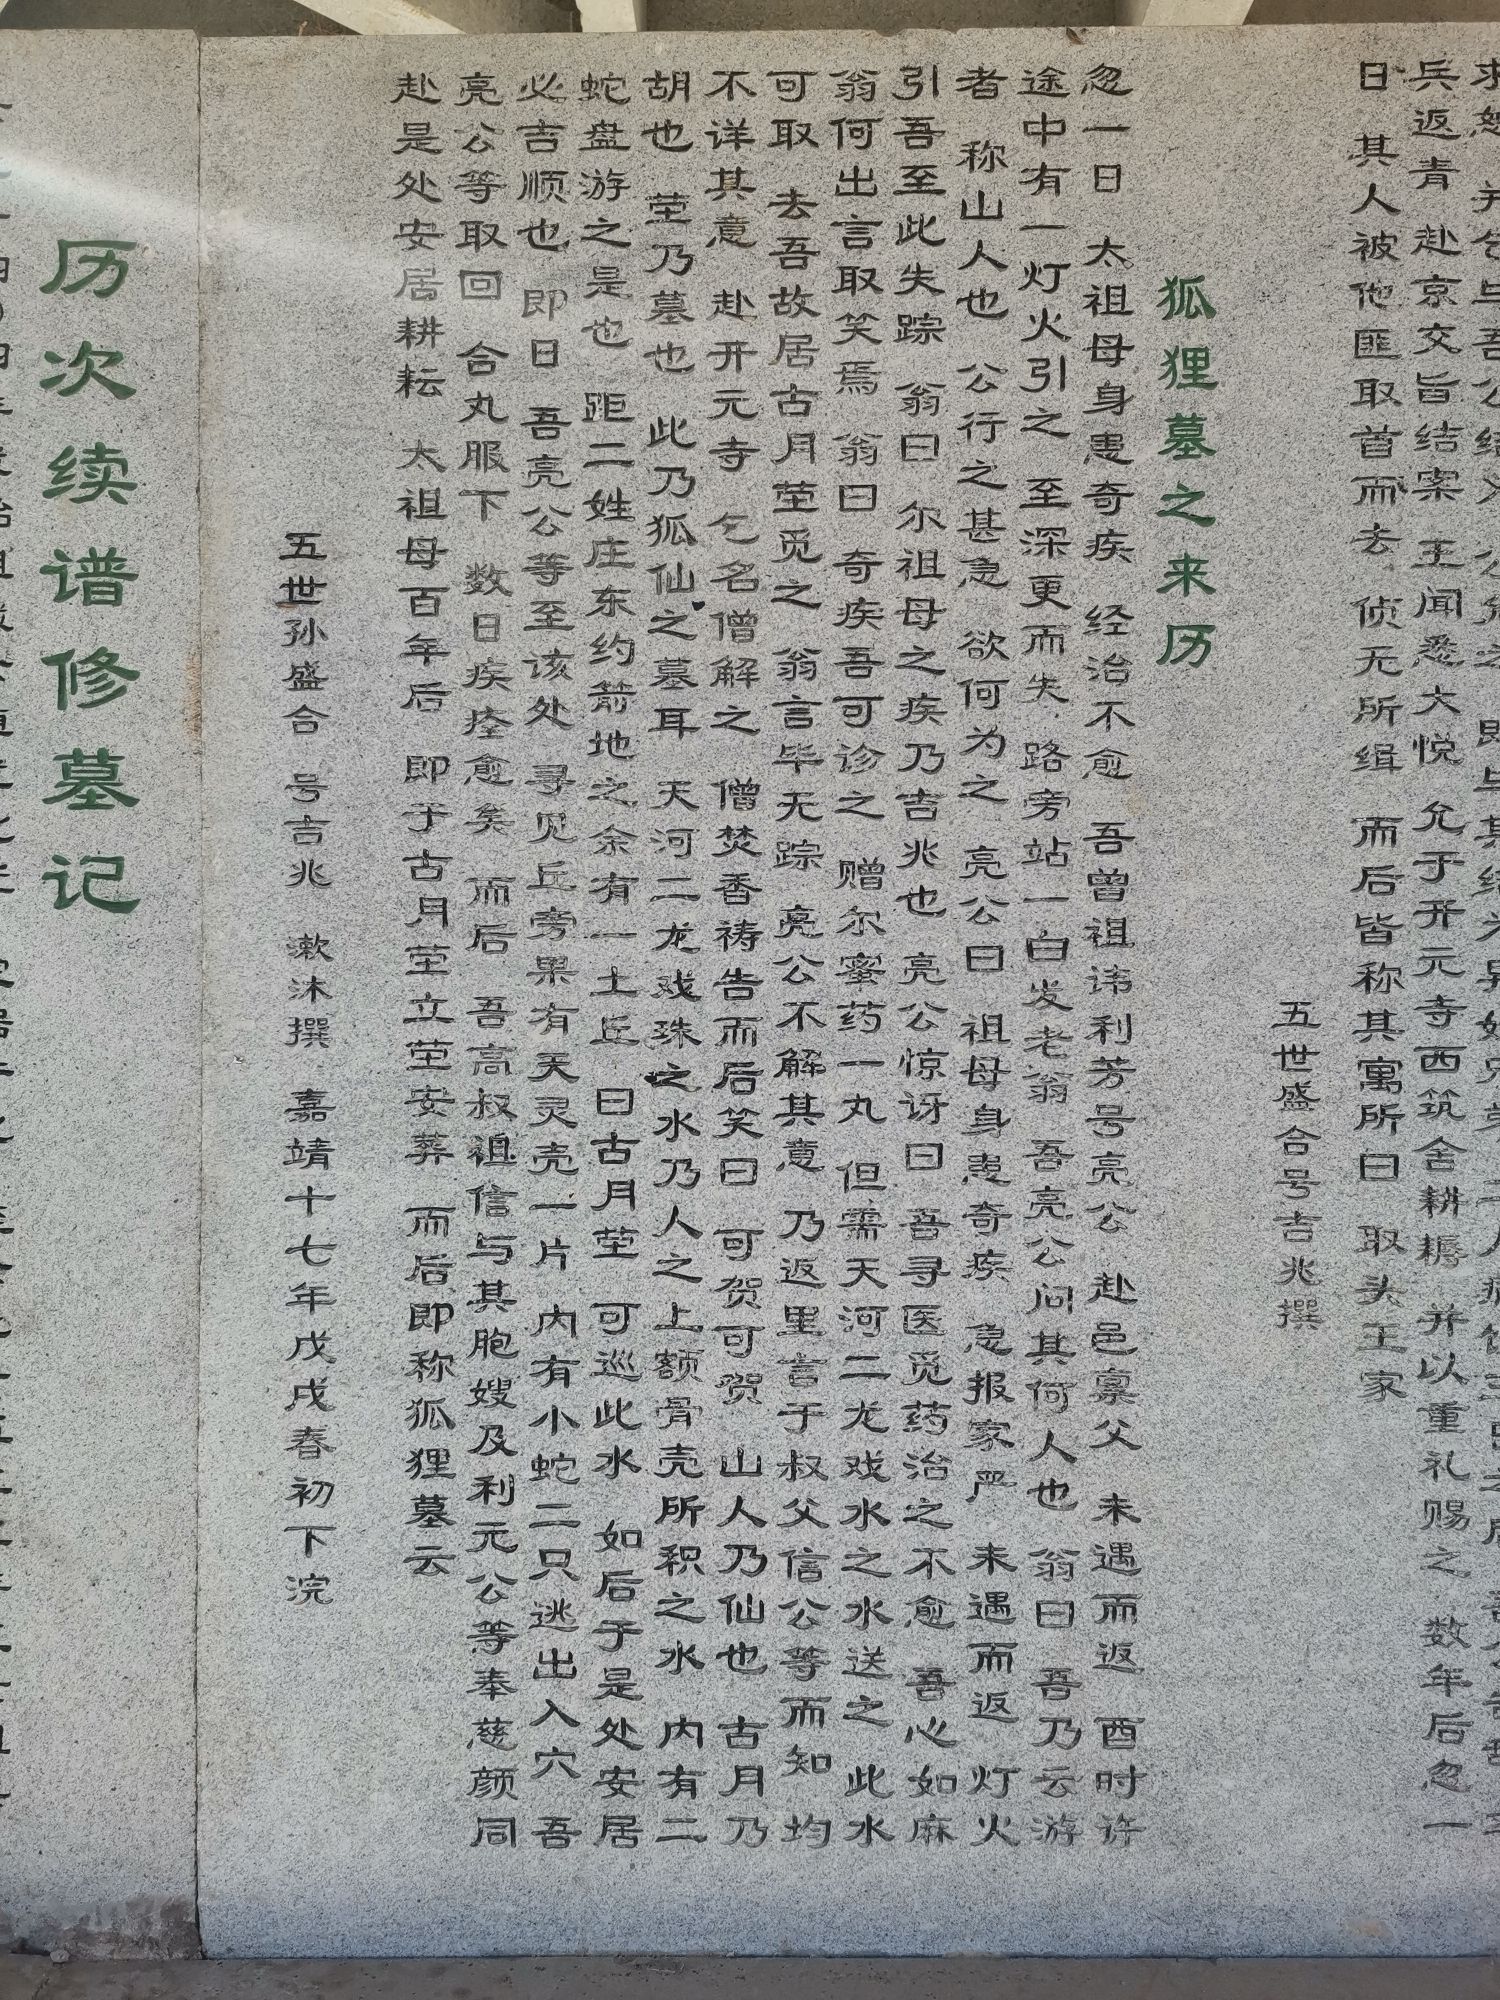 兵返青 赴京交旨结案 王闻悉大悦 允于开元寺西筑舍耕耨 并以重礼赐之 数年后忽一
日 其人被他匪取首而去 侦无所缉 而后皆称其寓所曰 取头王家
五世盛合号吉兆撰
狐狸墓之来历
忽一日 太祖母身患奇疾 经治不愈 吾曾祖讳利芳号亮公 赴邑禀父 未遇而返 酉时许
途中有一灯火引之 至深更而失 路旁站一白发老翁 吾亮公问其何人也 翁曰 吾乃云游
者 称山人也 公行之甚急 欲何为之 亮公曰 祖母身患奇疾 急报家严 未遇而返 灯火
引吾至此失踪 翁曰 尔祖母之疾乃吉兆也 亮公惊讶曰 吾寻医觅药治之不愈 吾心如麻
翁何出言取笑焉 翁曰 奇疾吾可诊之 赠尔蜜药一丸 但需天河二龙戏水之水送之 此水
可取 去吾故居古月茔觅之 翁言毕无踪 亮公不解其意 乃返里言于叔父信公等而知 均
不详其意 赴开元寺 乞名僧解之 僧焚香祷告而后笑曰 可贺可贺 山人乃仙也 古月乃
胡也 茔乃墓也 此乃狐仙之墓耳 天河二龙戏珠之水乃人之上额骨壳所积之水 内有二
蛇盘游之是也 距二姓庄东约箭地之余有一土丘 曰古月茔 可巡此水 如后于是处安居
必吉顺也 即日 吾亮公等至该处 寻见丘旁果有天灵壳一片 内有小蛇二只逃出入穴 吾
亮公等取回 合丸服下 数日疾痊愈矣 而后 吾高叔祖信与其胞嫂及利元公等奉慈颜同
赴是处安居耕耘 太祖母百年后 即于古月茔立茔安葬 而后即称狐狸墓云
五世孙盛合 号吉兆 漱沐撰 嘉靖十七年戊戌春初下浣
历次续谱修墓记